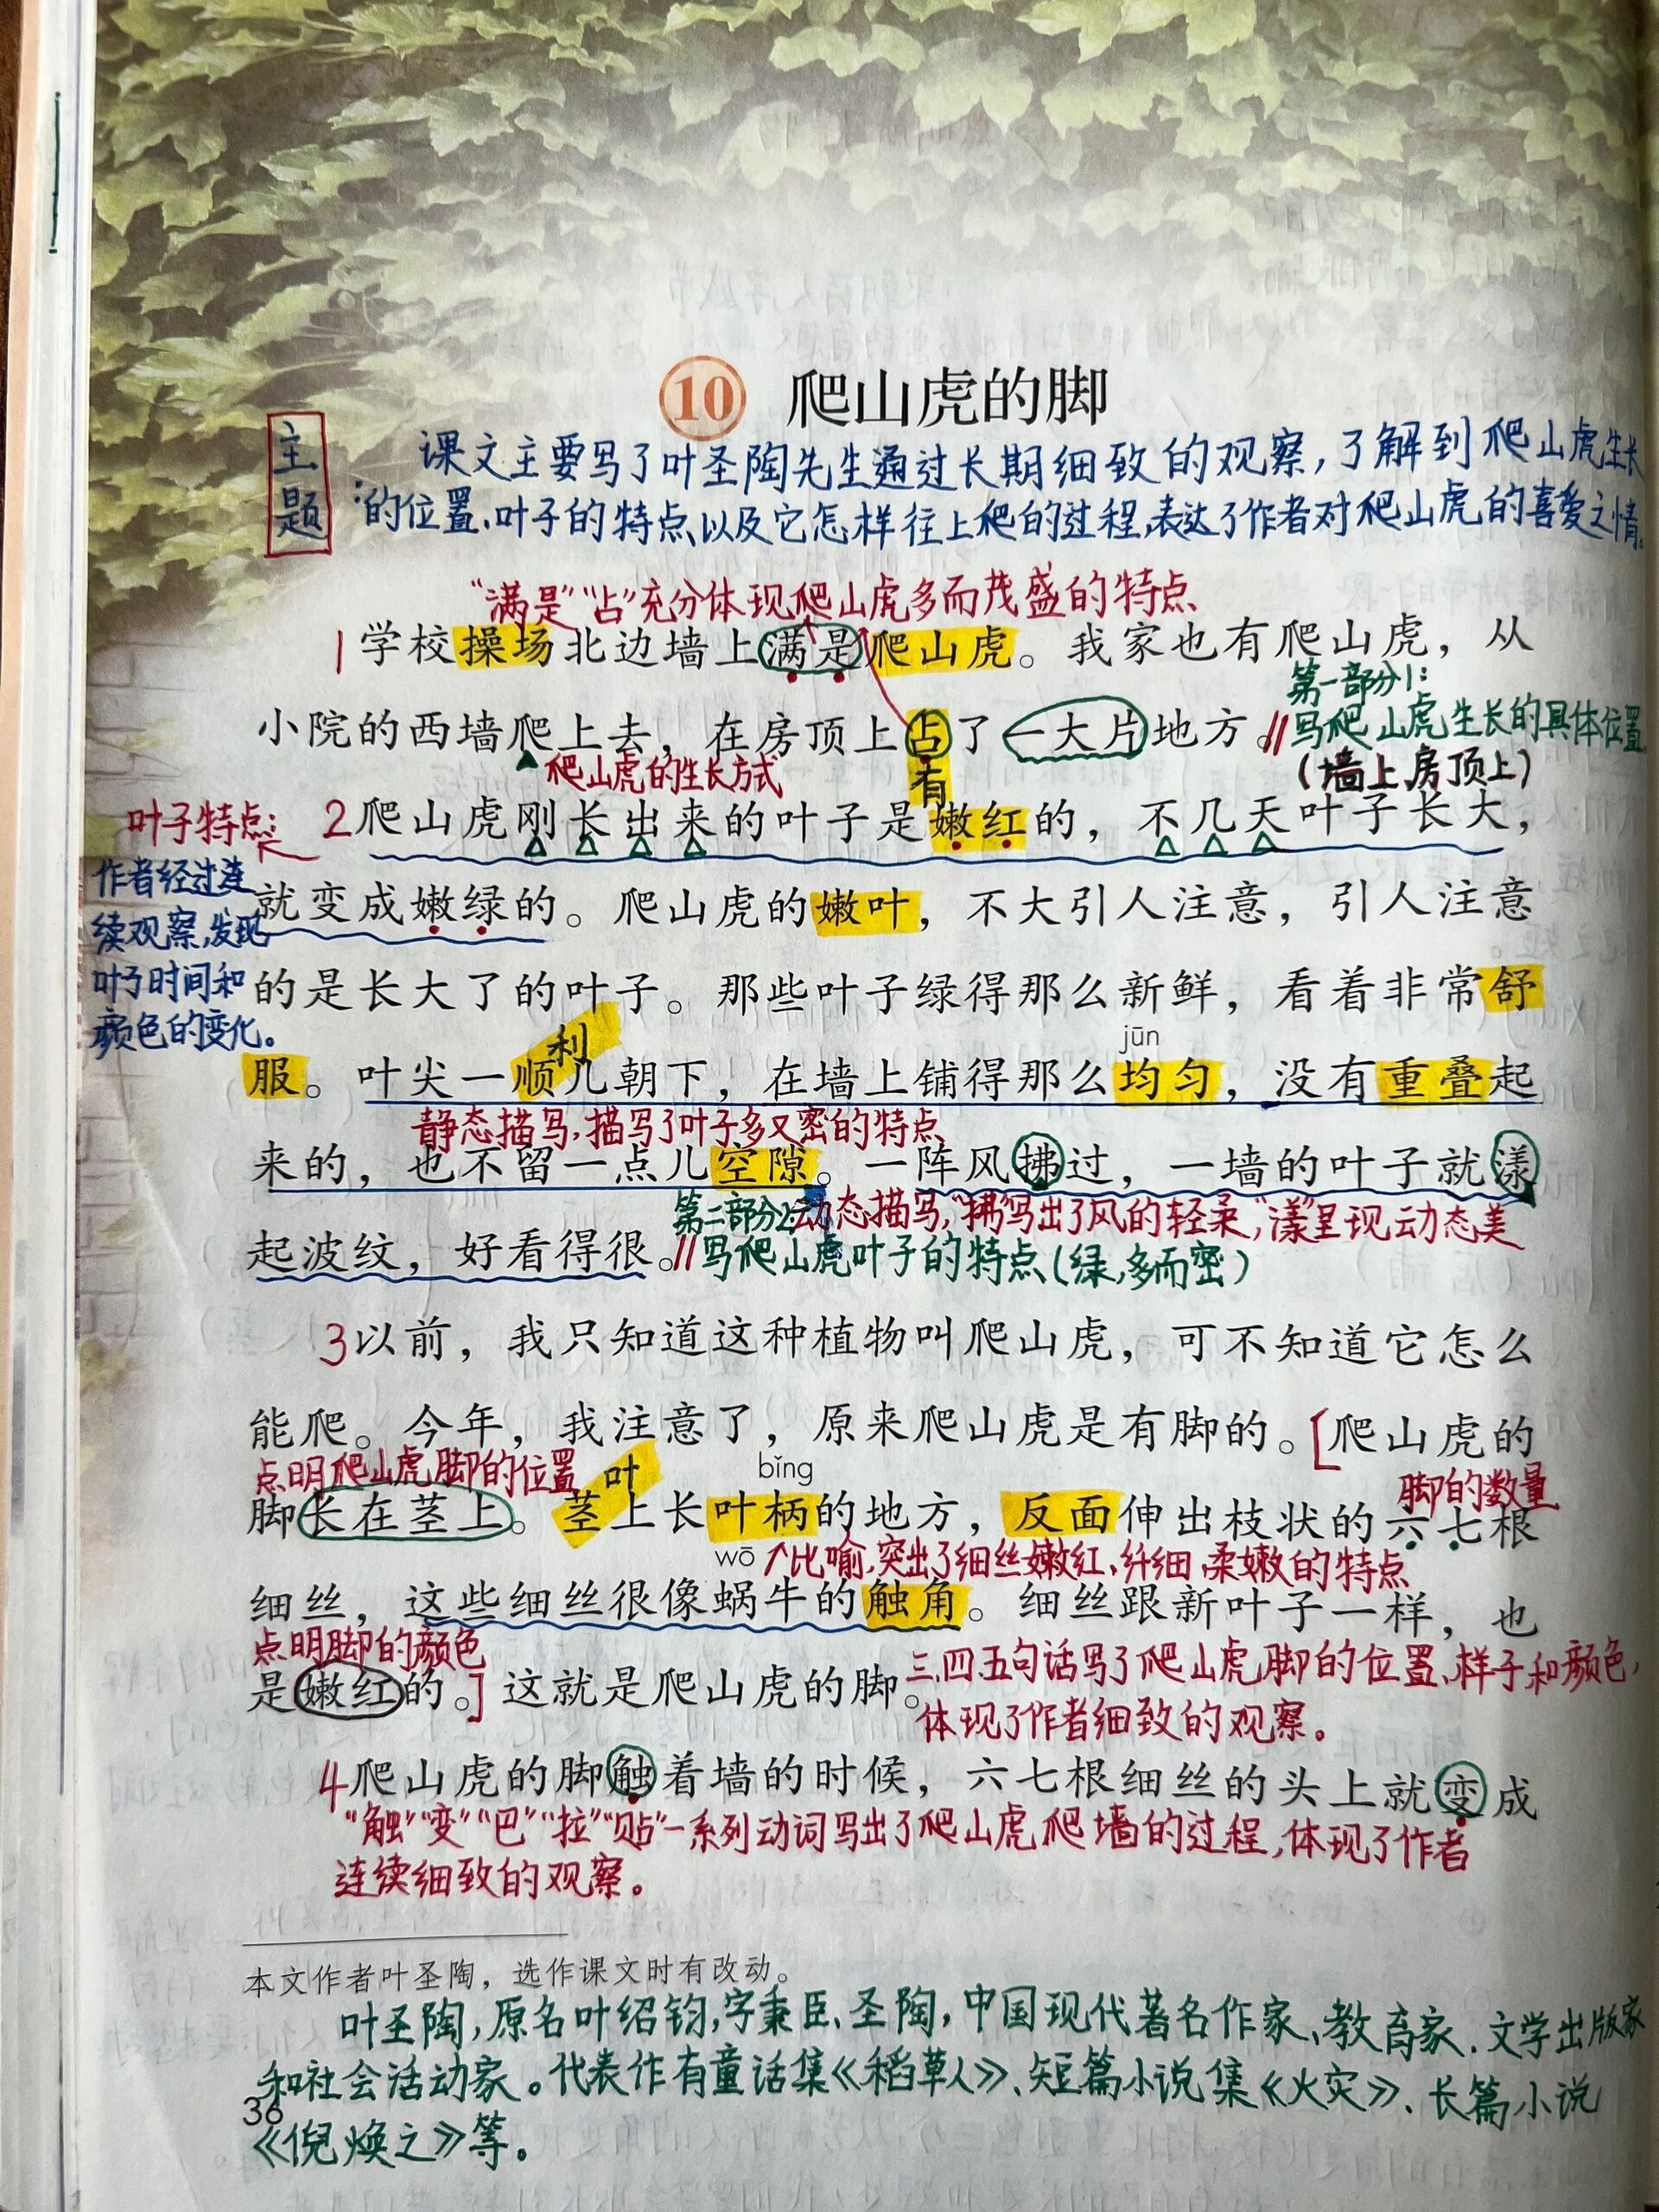 10 爬山虎的脚
主题
课文主要写了叶圣陶先生通过长期细致的观察,了解到爬山虎生长
:的位置、叶子的特点以及它怎样往上爬的过程,表达了作者对爬山虎的喜爱之情。
“满是”“占”充分体现爬山虎多而茂盛的特点
1学校操场北边墙上满是爬山虎。我家也有爬山虎，从
第一部分1:
小院的西墙爬上去，在房顶上占了一大片地方。//写爬山虎生长的具体位置
爬山虎的生长方式
有
(墙上,房顶上)
叶子特点:
2爬山虎刚长出来的叶子是嫩红的，不几天叶子长大，
作者经过连
续观察,发现
叶子时间和
颜色的变化。
就变成嫩绿的。爬山虎的嫩叶，不大引人注意，引人注意
的是长大了的叶子。那些叶子绿得那么新鲜，看着非常舒
利
jūn
服。叶尖一顺儿朝下，在墙上铺得那么均匀，没有重叠起
静态描写,描写了叶子多又密的特点
来的，也不留一点儿空隙。一阵风拂过，一墙的叶子就漾
第二部分2:动态描写,“拂”写出了风的轻柔,“漾”呈现动态美
起波纹，好看得很。//写爬山虎叶子的特点(绿,多而密)
3以前，我只知道这种植物叫爬山虎，可不知道它怎么
能爬。今年，我注意了，原来爬山虎是有脚的。[爬山虎的
点明爬山虎脚的位置
叶
bǐng
脚的数量
脚长在茎上。茎上长叶柄的地方，反面伸出枝状的六七根
wō
↗比喻,突出了细丝嫩红,纤细,柔嫩的特点
细丝，这些细丝很像蜗牛的触角。细丝跟新叶子一样，也
点明脚的颜色
是嫩红的。]这就是爬山虎的脚。
三、四、五句话写了爬山虎脚的位置、样子和颜色,
体现了作者细致的观察。
4爬山虎的脚触着墙的时候，六七根细丝的头上就变成
“触”“变”“巴”“拉”“贴”一系列动词写出了爬山虎爬墙的过程,体现了作者
连续细致的观察。
本文作者叶圣陶，选作课文时有改动。
叶圣陶,原名叶绍钧,字秉臣、圣陶,中国现代著名作家、教育家、文学出版家
和社会活动家。代表作有童话集《稻草人》、短篇小说集《火灾》、长篇小说
36
《倪焕之》等。